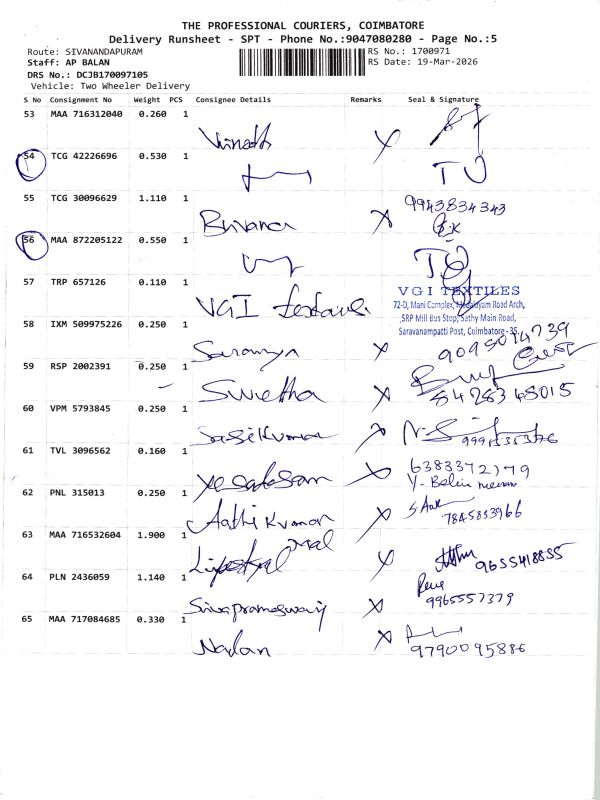 THE PROFESSIONAL COURIERS, COIMBATORE
Delivery Runsheet - SPT - Phone No.:9047080280 - Page No.:5
Route: SIVANANDAPURAM
RS No.: 1700971
Staff: AP BALAN
RS Date: 19-Mar-2026
DRS No.: DCJB170097105
Vehicle: Two Wheeler Delivery
S No Consignment No Weight PCS Consignee Details Remarks Seal & Signature
53 MAA 716312040 0.260 1
54 TCG 42226696 0.530 1
TU
55 TCG 30096629 1.110 1
9943834343
56 MAA 872205122 0.550 1
57 TRP 657126 0.110 1
VGI
VGI TEXTILES
72-D, Mani Complex, Road Arch,
SRP Mill Bus Stop, Sathy Main Road,
Saravanampatti Post, Coimbatore - 35.
58 IXM 509975226 0.250 1
Saranya
59 RSP 2002391 0.250 1
Swetha
8428348015
60 VPM 5793845 0.250 1
Sasikumar
61 TVL 3096562 0.160 1
6383372179
62 PNL 315013 0.250 1
Aathi Kumar
7845853966
63 MAA 716532604 1.900 1
9655418855
64 PLN 2436059 1.140 1
9965557379
65 MAA 717084685 0.330 1
9790095886